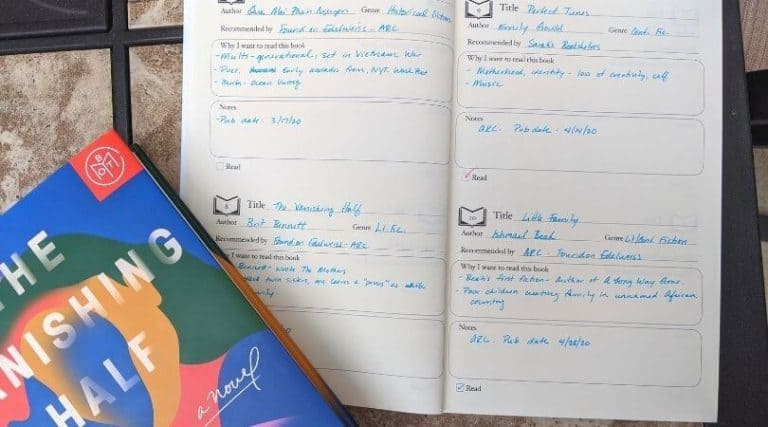 Author Que Mai Phan Nguyen Genre Historical Fiction
Recommended by Found on Edelweiss - ARC
Why I want to read this book
- Multi-generational, set in Vietnam War
- Poet, early accolades from NYT, Wash Post
- Ocean Vuong
Notes
- Pub date: 3/17/20
Read
8 Title The Vanishing Half
Author Brit Bennett Genre Lit. Fic.
Recommended by Found on Edelweiss - ARC
Why I want to read this book
Bennett - wrote The Mothers
twin sisters, one lives a "passes" as white
family
9 Title Perfect Tunes
Author Emily Gould Genre Cont. Fic.
Recommended by Sarah's Bookshelves
Why I want to read this book
- Motherhood, identity - loss of creativity, self
- Music
Notes
ARC. Pub date - 4/14/20
Read
10 Title Little Family
Author Ishmael Beah Genre Lit/Cont Fiction
Recommended by ARC - Found on Edelweiss
Why I want to read this book
- Beah's first fiction - author of A Long Way Gone.
- Poor children creating family in unnamed African
country
Notes
ARC. Pub date 4/28/20
Read
BOTM
THE
VANISHING
HALF
a novel